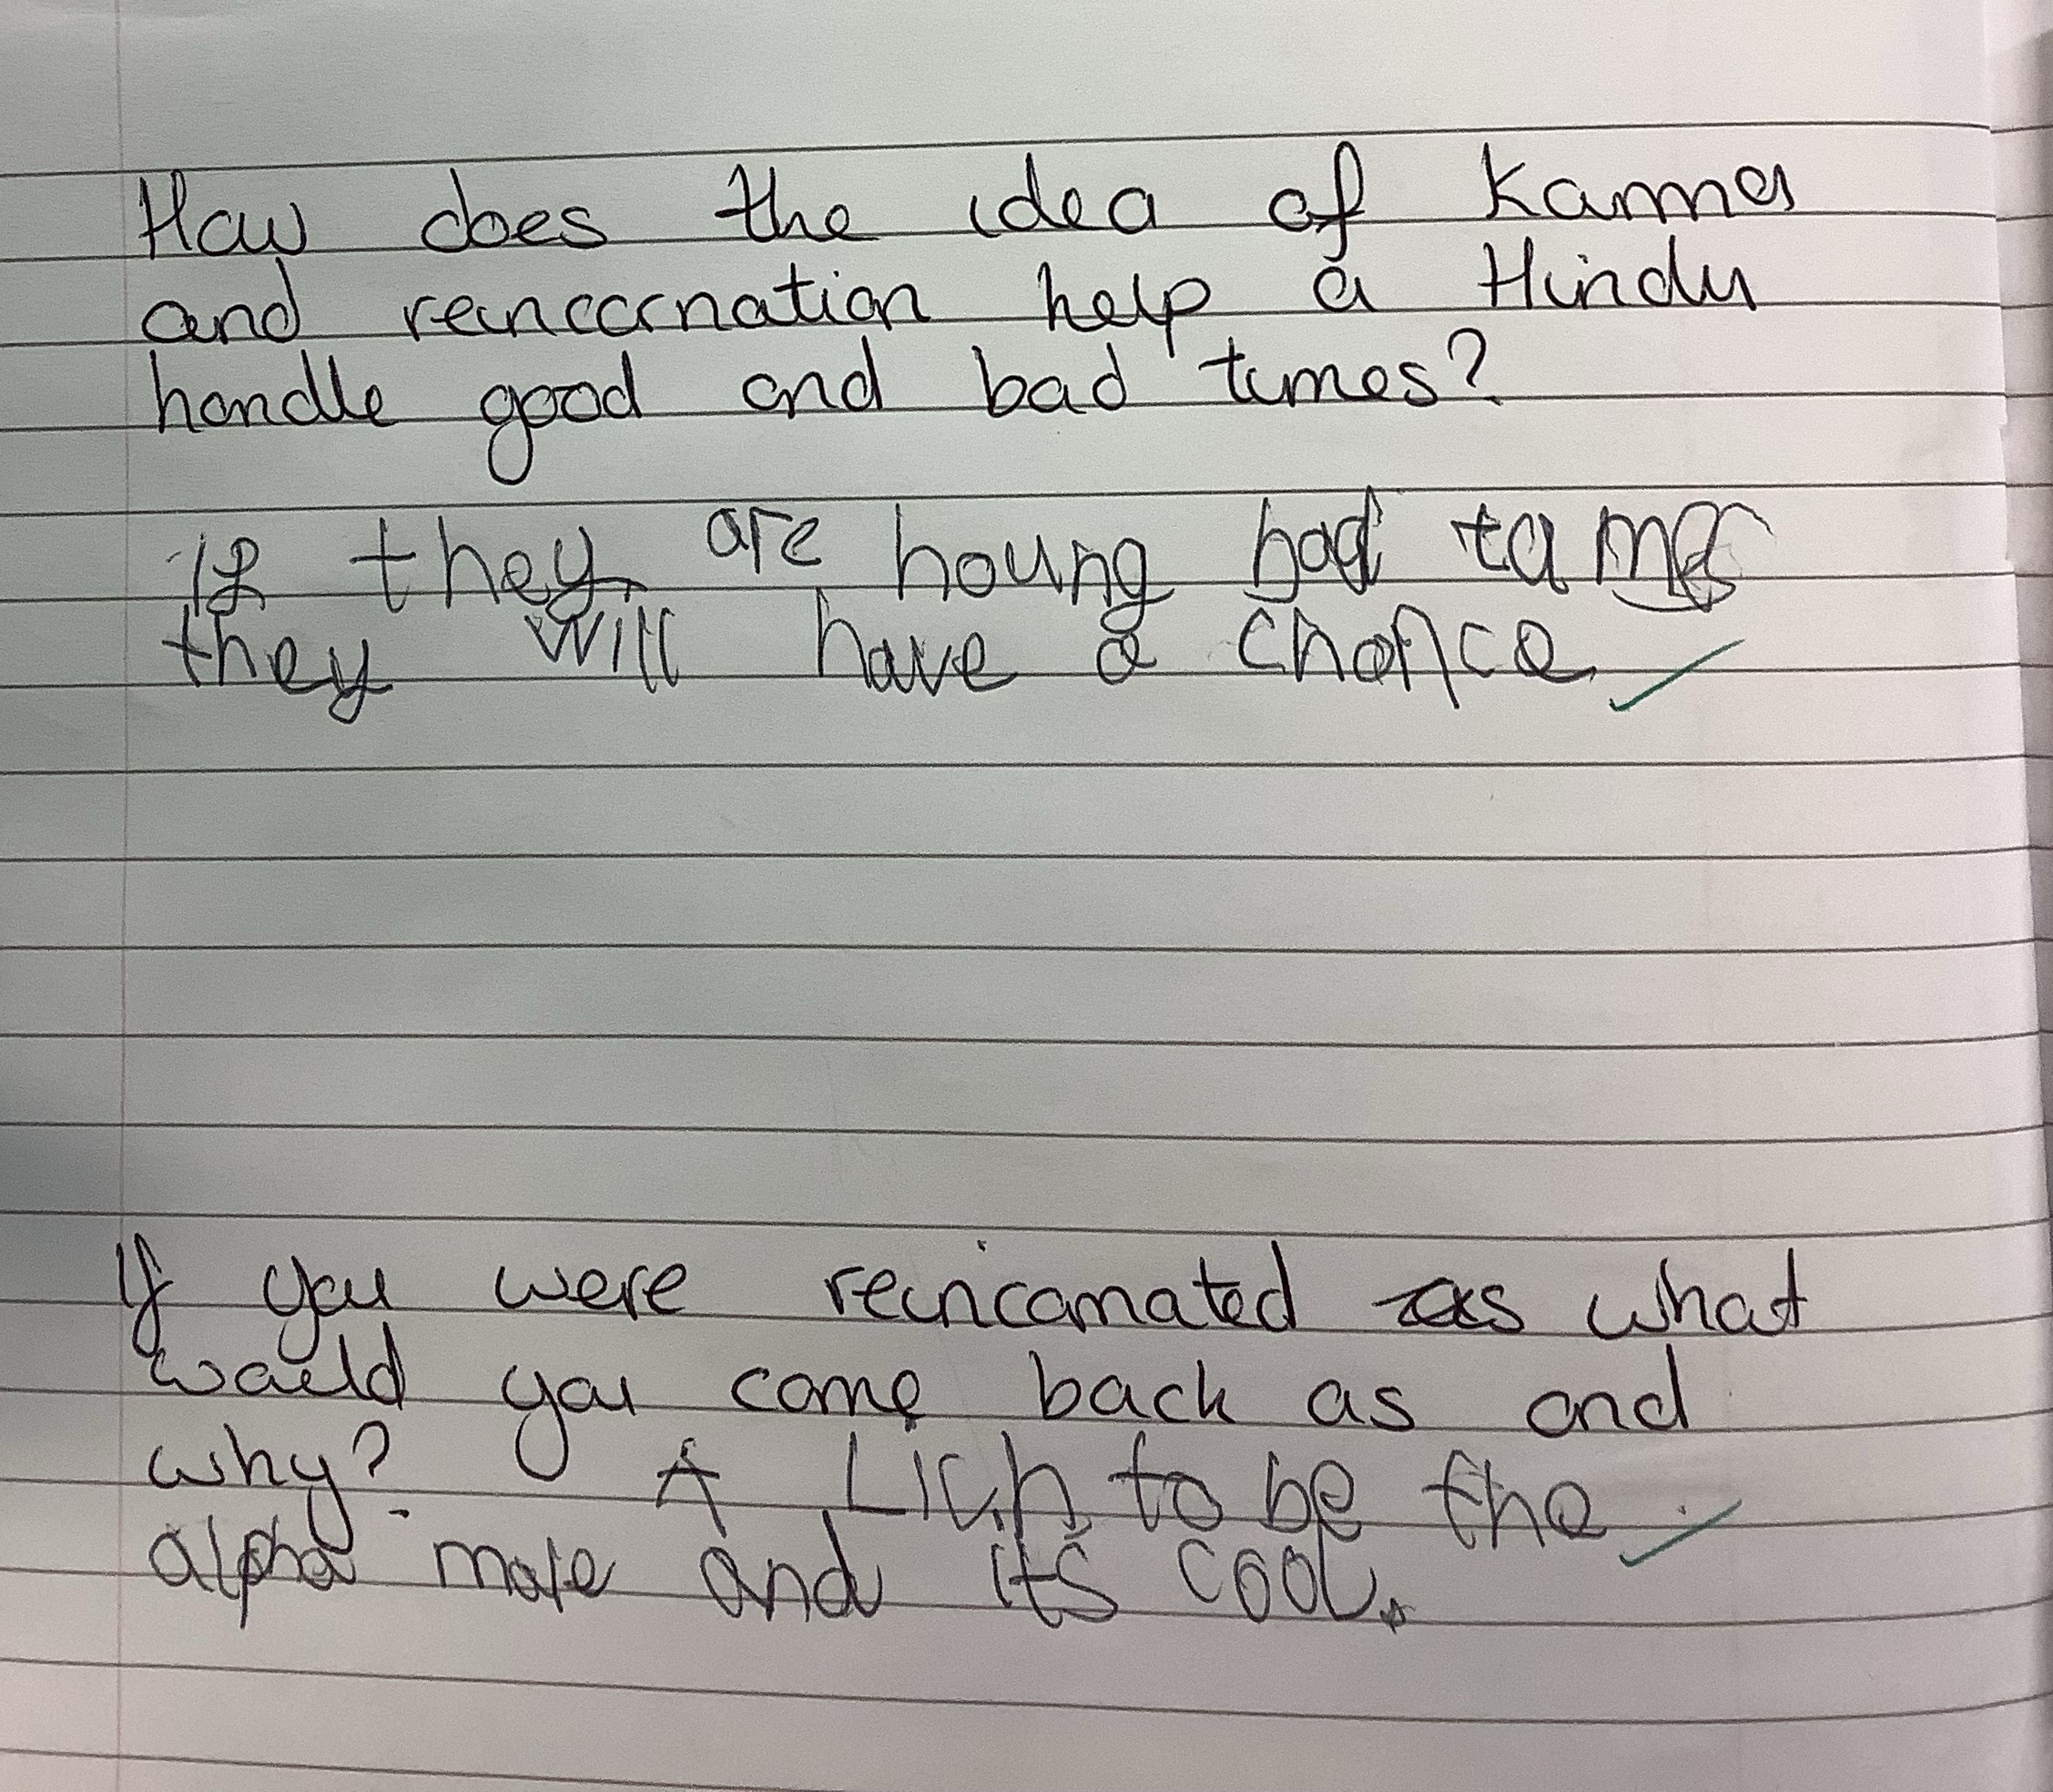 How does the idea of Karma
and reincarnation help a Hindu
handle good and bad times?
If they are houng bad tames
they will have a chance
If you were reincarnated as what
would you come back as and
why? A Lion to be the
alpha male and its cool.